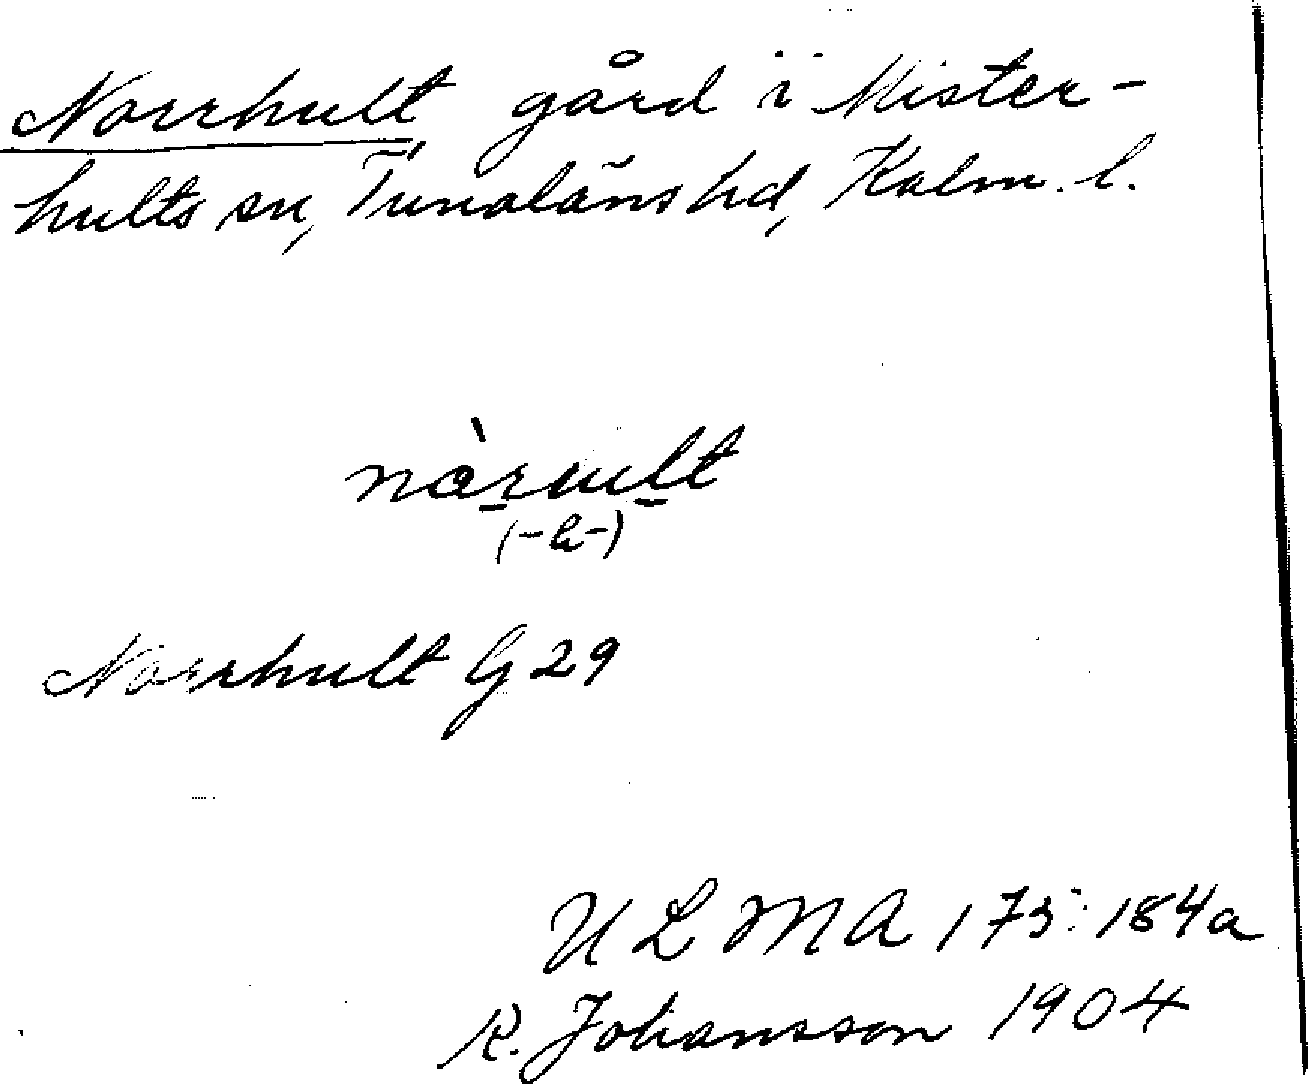 Norrhult gård i Mister-
hults sn, Tunaläns hd, Kalm. l.
nòrult
(-h-)
Norrhult G 29
ULMA 173:184a
R. Johansson 1904